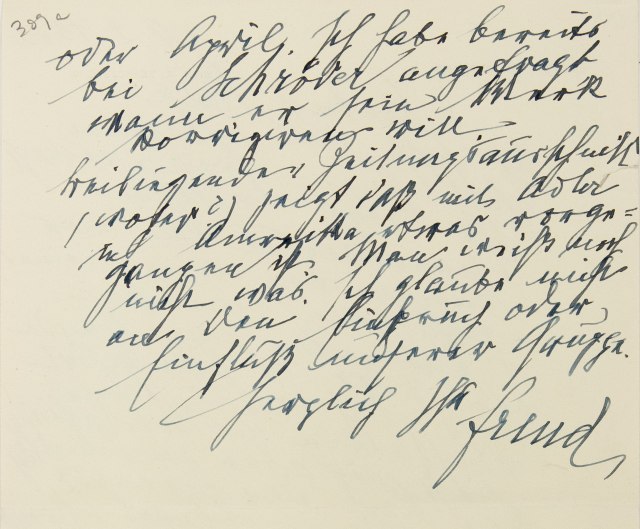 389a
oder April. Ich habe bereits
bei Schröder angefragt
wann er sein Werk
korrigiren will
beiliegender Zeitungsausschnitt
(woher?) zeigt daß mit Adler
in Amerika etwas vorge=
gangen ist. Man weiß noch
nicht was. Ich glaube nicht
an den Einspruch oder
Einfluß unserer Gruppe.
Herzlich Ihr
Freud